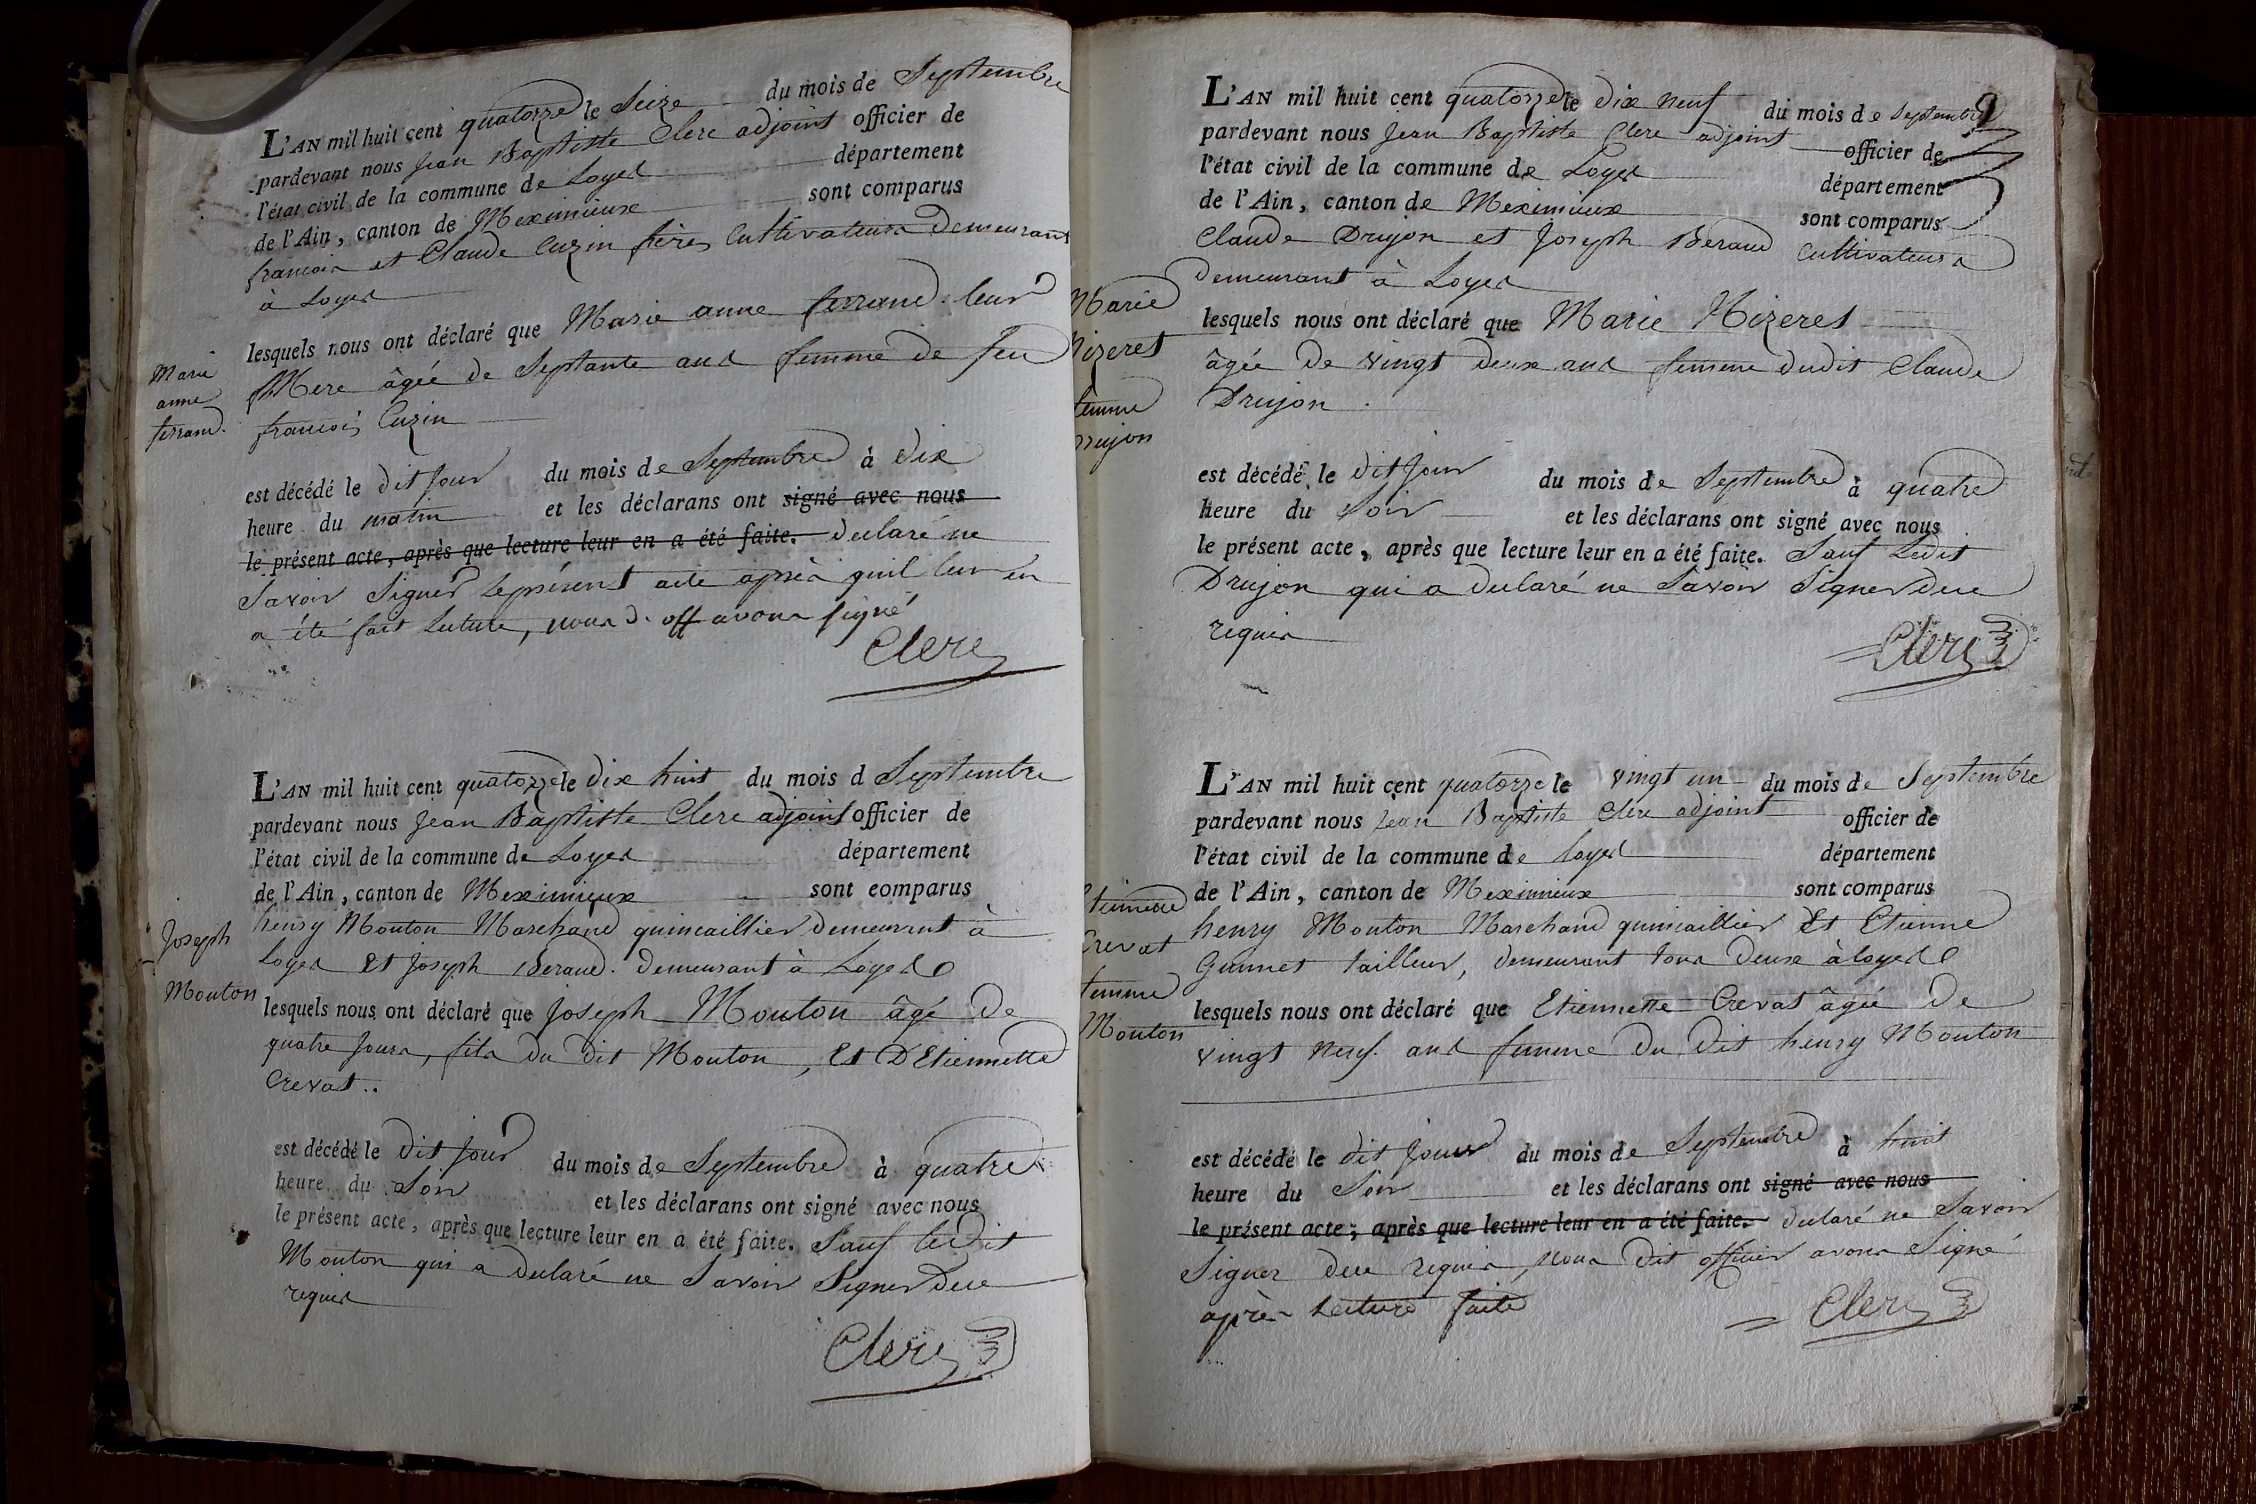 L'AN mil huit cent quatorze le Seize du mois de Septembre
pardevant nous Jean Baptiste Clerc adjoint officier de
l'état civil de la commune de Loyes département
de l'Ain, canton de Meximieux sont comparus
francois et Claude Cuzin frères Cultivateurs Demeurant
à Loyes
lesquels nous ont déclaré que Marie anne ferrand leur
Mere âgée de Septante ans femme de feu
francois Cuzin
Marie
anne
ferrand.
est décédé le dit Jour du mois de Septembre à dix
heure du matin et les déclarans ont signé avec nous
le présent acte, après que lecture leur en a été faite. declaré ne
Savoir Signer le présent acte après quil leur en
a été fait lecture, nous d. off avons signé
Clerc
L'AN mil huit cent quatorze le dix huit du mois d Septembre
pardevant nous Jean Baptiste Clerc adjoint officier de
l'état civil de la commune de Loyes département
de l'Ain, canton de Meximieux sont comparus
henry Mouton Marchand quincaillier demeurant à
Loyes Et Joseph Beraud. demeurant à Loyes
lesquels nous ont déclaré que Joseph Mouton âgé De
quatre Jours, fils du dit Mouton, Et D'Etiennette
Crevat..
Joseph
Mouton
est décédé le dit Jour du mois de Septembre à quatre
heure du Soir et les déclarans ont signé avec nous
le présent acte, après que lecture leur en a été faite. Sauf ledit
Mouton qui a declaré ne Savoir Signer dece
requis
Clerc
L'AN mil huit cent quatorze le dix neuf du mois de Septembre
pardevant nous Jean Baptiste Clerc adjoint officier de
l'état civil de la commune de Loyes département
de l'Ain, canton de Meximieux sont comparus
Claude Drujon et Joseph Beraud Cultivateurs
demeurant à Loyes
lesquels nous ont déclaré que Marie Nizeret
âgée de vingt deux ans femme dudit Claude
Drujon.
Marie
Nizeret
femme
Drujon
est décédé le dit Jour du mois de Septembre à quatre
heure du Soir et les déclarans ont signé avec nous
le présent acte, après que lecture leur en a été faite. Sauf Ledit
Drujon qui a declaré ne Savoir Signer dece
requis
Clerc
L'AN mil huit cent quatorze le vingt un du mois de Septembre
pardevant nous Jean Baptiste Clerc adjoint officier de
l'état civil de la commune de Loyes département
de l'Ain, canton de Meximieux sont comparus
henry Mouton Marchand quincaillier Et Etienne
Gunnet tailleur, demeurant tous deux à loyes
lesquels nous ont déclaré que Etiennette Crevat âgée De
vingt Neuf. ans femme Du Dit henry Mouton
Etiennette
Crevat
femme
Mouton
est décédé le dit Jour du mois de Septembre à huit
heure du Soir et les déclarans ont signé avec nous
le présent acte; après que lecture leur en a été faite. declaré ne Savoir
Signer dece requis, nous dit officier avons Signé
après Lecture faite
Clerc